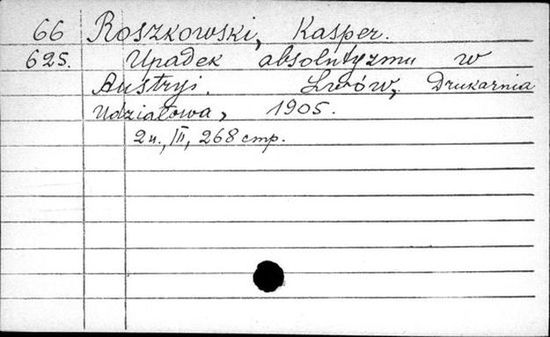 66 Roszkowski, Kasper.
625. Upadek absolutyzmu w
Austryi. Lwów, Drukarnia
Udziałowa, 1905.
2 н., III, 268 стр.